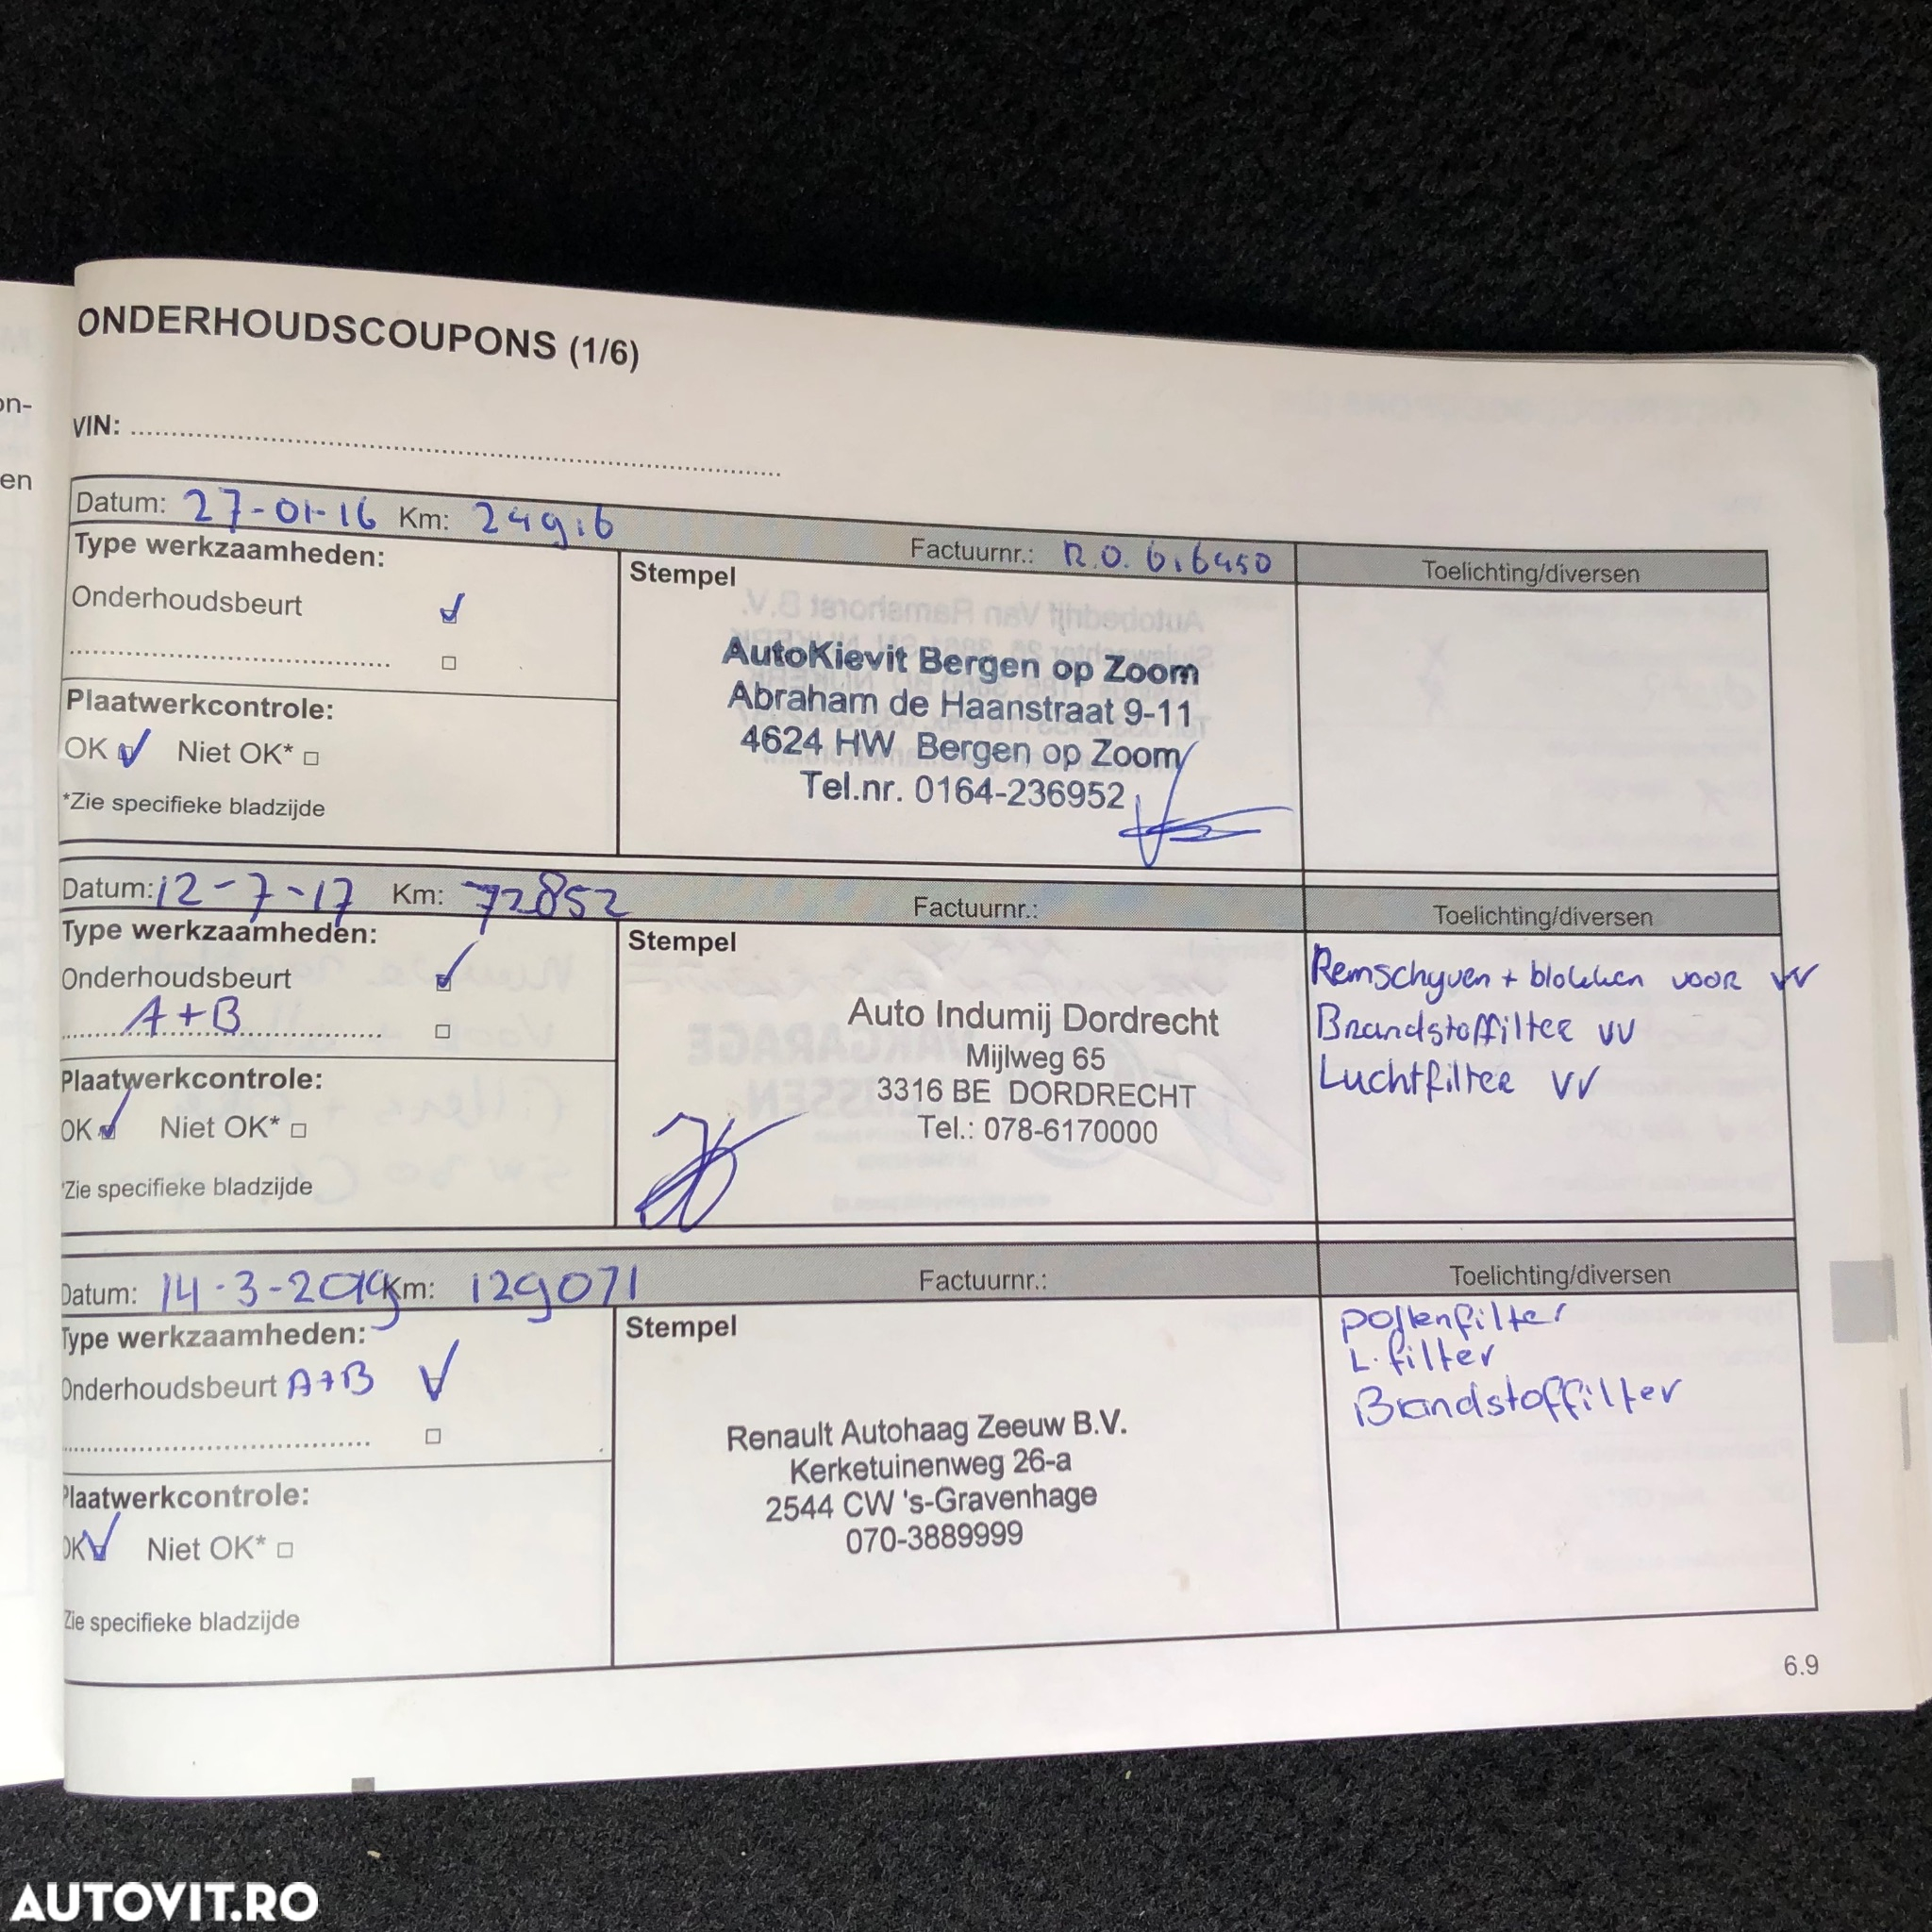 ONDERHOUDSCOUPONS (1/6)
on-
VIN:
en
Datum: 27-01-16 Km: 24916 Factuurnr.: R.O. 616450 Toelichting/diversen
Type werkzaamheden:
Stempel
Onderhoudsbeurt
AutoKievit Bergen op Zoom
Abraham de Haanstraat 9-11
4624 HW Bergen op Zoom
Tel.nr. 0164-236952
Plaatwerkcontrole:
OK Niet OK*
*Zie specifieke bladzijde
Datum: 12-7-17 Km: 72852 Factuurnr.: Toelichting/diversen
Type werkzaamheden:
Stempel
Onderhoudsbeurt
A+B
Auto Indumij Dordrecht
Mijlweg 65
3316 BE DORDRECHT
Tel.: 078-6170000
Remschyven + blokken voor VV
Brandstoffilter VV
Luchtfilter VV
Plaatwerkcontrole:
OK Niet OK*
*Zie specifieke bladzijde
Datum: 14-3-2019 Km: 129071 Factuurnr.: Toelichting/diversen
Type werkzaamheden:
Stempel
Onderhoudsbeurt A+B
Renault Autohaag Zeeuw B.V.
Kerketuinenweg 26-a
2544 CW 's-Gravenhage
070-3889999
pollenfilter
L. filter
Brandstoffilter
Plaatwerkcontrole:
OK Niet OK*
Zie specifieke bladzijde
6.9
AUTOVIT.RO